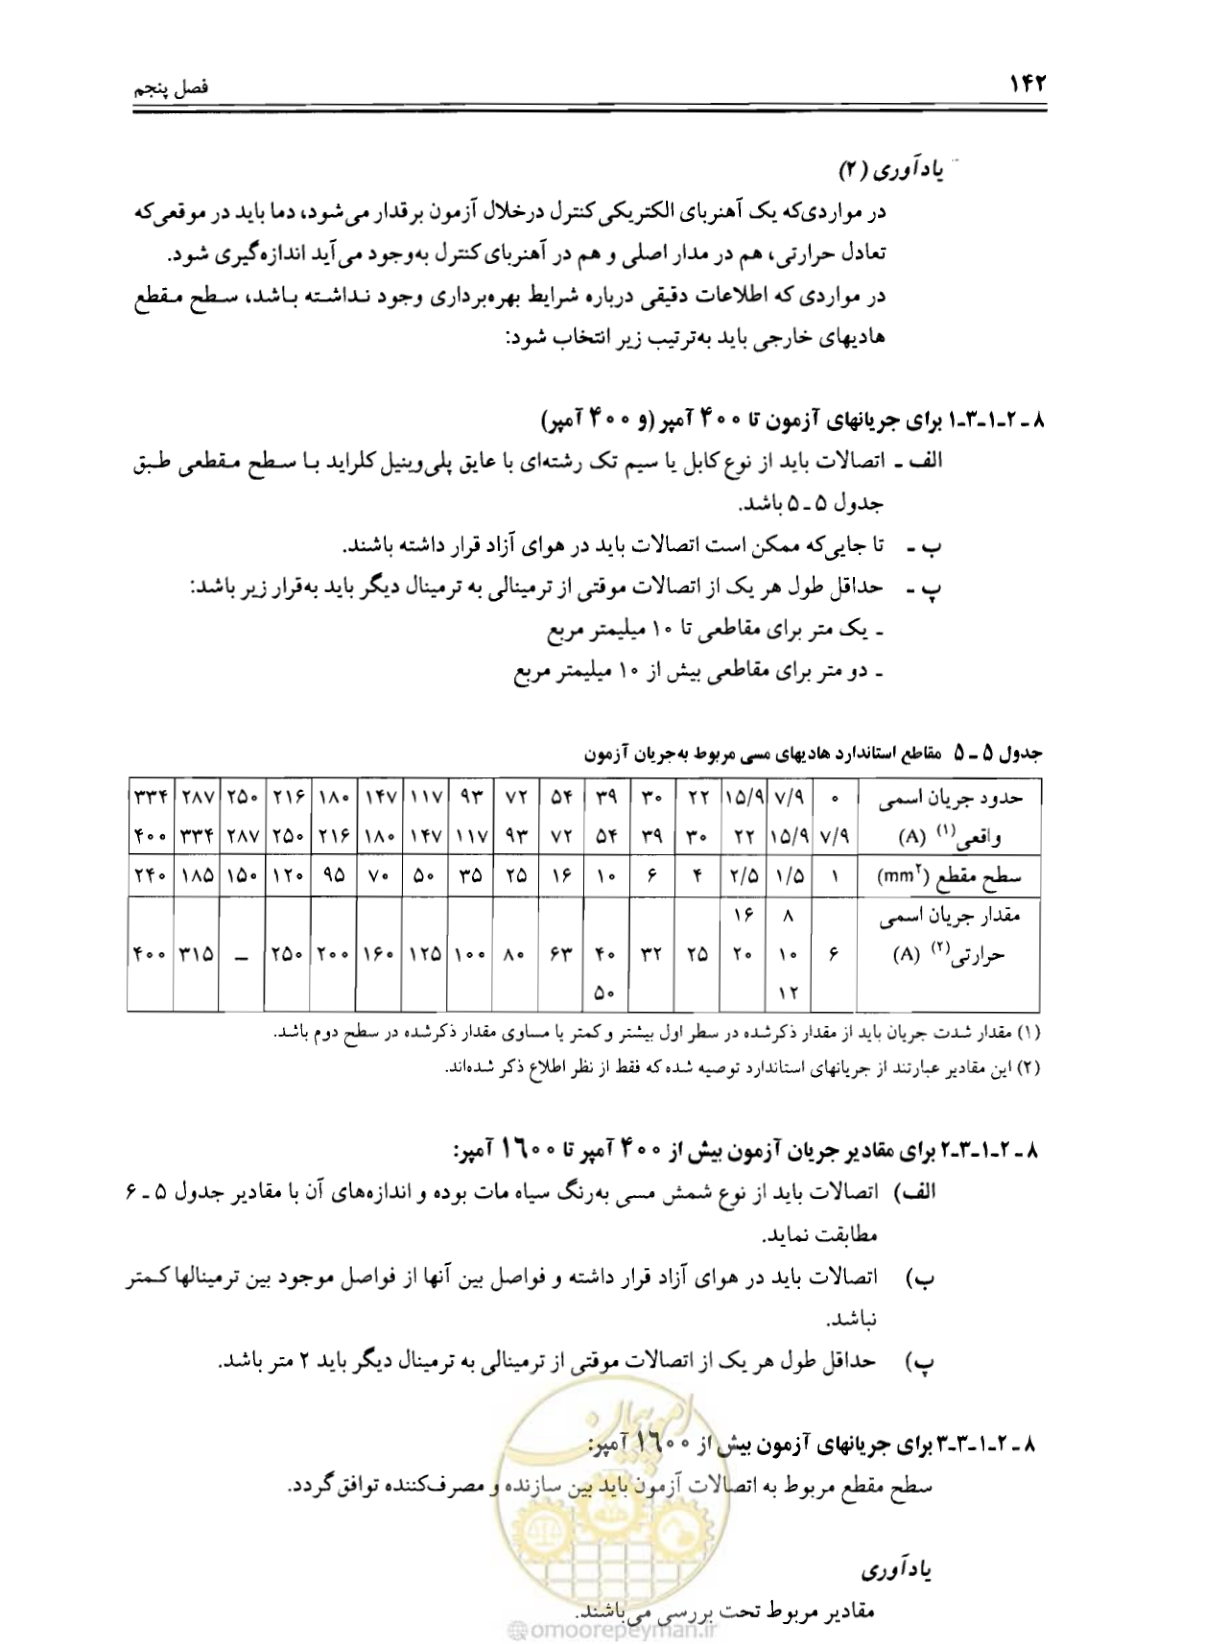 ۱۴۲
فصل پنجم
یادآوری (۲)
در مواردی‌که یک آهنربای الکتریکی کنترل درخلال آزمون برقدار می‌شود، دما باید در موقعی‌که
تعادل حرارتی، هم در مدار اصلی و هم در آهنربای کنترل به‌وجود می‌آید اندازه‌گیری شود.
در مواردی که اطلاعات دقیقی درباره شرایط بهره‌برداری وجود نداشته باشد، سطح مقطع
هادیهای خارجی باید به‌ترتیب زیر انتخاب شود:
۸-۲-۱-۳-۱ برای جریانهای آزمون تا ۴۰۰ آمپر (و ۴۰۰ آمپر)
الف - اتصالات باید از نوع کابل یا سیم تک رشته‌ای با عایق پلی‌وینیل کلراید با سطح مقطعی طبق
جدول ۵-۵ باشد.
ب - تا جایی‌که ممکن است اتصالات باید در هوای آزاد قرار داشته باشند.
پ - حداقل طول هر یک از اتصالات موقتی از ترمینالی به ترمینال دیگر باید به‌قرار زیر باشد:
- یک متر برای مقاطعی تا ۱۰ میلیمتر مربع
- دو متر برای مقاطعی بیش از ۱۰ میلیمتر مربع
جدول ۵-۵ مقاطع استاندارد هادیهای مسی مربوط به‌جریان آزمون
حدود جریان اسمی ۰ ۷/۹ ۱۵/۹ ۲۲ ۳۰ ۳۹ ۵۴ ۷۲ ۹۳ ۱۱۷ ۱۴۷ ۱۸۰ ۲۱۶ ۲۵۰ ۲۸۷ ۳۳۴
واقعی(۱) (A) ۷/۹ ۱۵/۹ ۲۲ ۳۰ ۳۹ ۵۴ ۷۲ ۹۳ ۱۱۷ ۱۴۷ ۱۸۰ ۲۱۶ ۲۵۰ ۲۸۷ ۳۳۴ ۴۰۰
سطح مقطع (mm۲) ۱ ۱/۵ ۲/۵ ۴ ۶ ۱۰ ۱۶ ۲۵ ۳۵ ۵۰ ۷۰ ۹۵ ۱۲۰ ۱۵۰ ۱۸۵ ۲۴۰
مقدار جریان اسمی ۸ ۱۶
حرارتی(۲) (A) ۶ ۱۰ ۲۰ ۲۵ ۳۲ ۴۰ ۶۳ ۸۰ ۱۰۰ ۱۲۵ ۱۶۰ ۲۰۰ ۲۵۰ – ۳۱۵ ۴۰۰
۱۲ ۵۰
(۱) مقدار شدت جریان باید از مقدار ذکرشده در سطر اول بیشتر و کمتر یا مساوی مقدار ذکرشده در سطح دوم باشد.
(۲) این مقادیر عبارتند از جریانهای استاندارد توصیه شده که فقط از نظر اطلاع ذکر شده‌اند.
۸-۲-۱-۳-۲ برای مقادیر جریان آزمون بیش از ۴۰۰ آمپر تا ۱۶۰۰ آمپر:
الف) اتصالات باید از نوع شمش مسی به‌رنگ سیاه مات بوده و اندازه‌های آن با مقادیر جدول ۵-۶
مطابقت نماید.
ب) اتصالات باید در هوای آزاد قرار داشته و فواصل بین آنها از فواصل موجود بین ترمینالها کمتر
نباشد.
پ) حداقل طول هر یک از اتصالات موقتی از ترمینالی به ترمینال دیگر باید ۲ متر باشد.
۸-۲-۱-۳-۳ برای جریانهای آزمون بیش از ۱۶۰۰ آمپر:
سطح مقطع مربوط به اتصالات آزمون باید بین سازنده و مصرف‌کننده توافق گردد.
یادآوری
مقادیر مربوط تحت بررسی می‌باشند.
امور پیمان
@omoorepeyman.ir